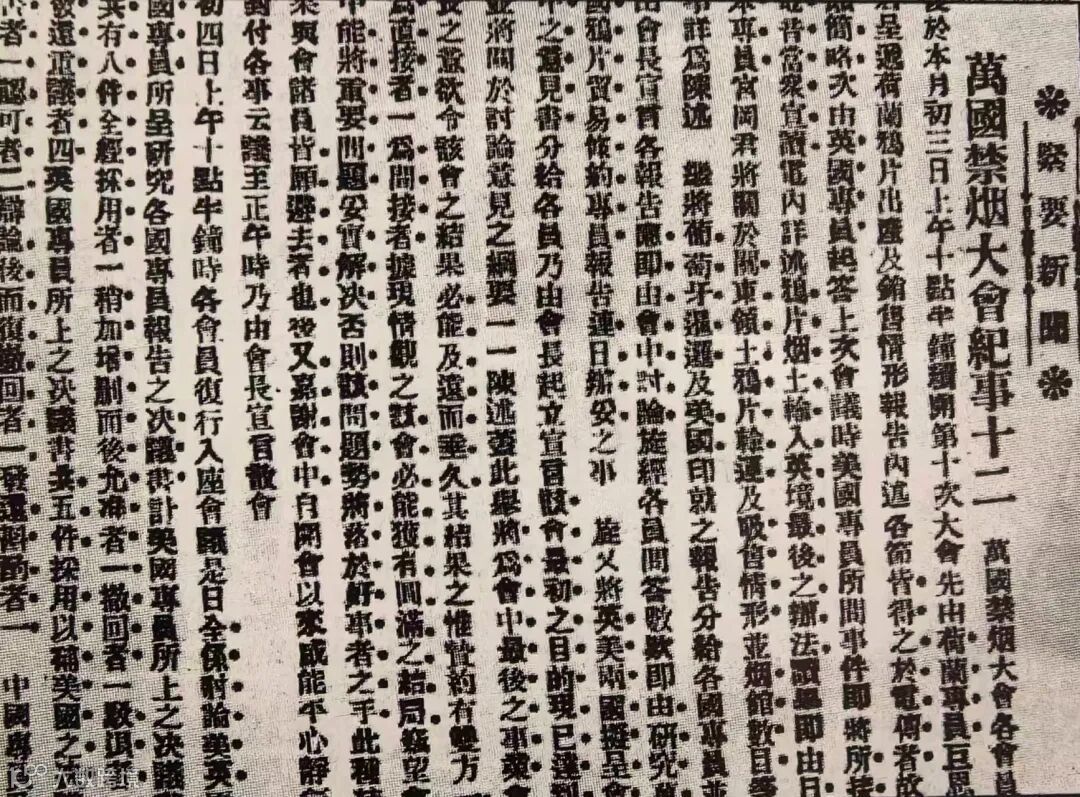 緊要新聞
萬國禁烟大會紀事十二
萬國禁烟大會各會員
於本月初三日上午十點半鐘續開第十次大會先由荷蘭專員
呈遞荷蘭鴉片出產及銷售情形報告內述各節皆得之於電傳者故
簡略次由英國專員起答上次會議時美國專員所問事件即將所接
電音當眾宣讀電內詳述鴉片烟土輸入英境最後之辦法讀畢即由日
本專員宮岡君將關於關東領土鴉片輸運及吸售情形並烟館數目
詳為陳述 繼將葡萄牙暹邏及美國印就之報告分給各國專員並
國鴉片貿易條約專員報告連日辦妥之事 旋又將英美兩國
會長宣言各報告應即由會中討論旋經各員問答數欵即由研究萬
之意見書分給各員乃由會長起立宣言該會最初之日的現已達到
並將關於討論意見之綱要一一陳述蓋此舉將為會中最後之事
之意欲令該會之結果必能及遠而垂久其結果之惟贊約有雙方
直接者一為間接者據現情觀之該會必能獲有圓滿之結局竊望
能將重要問題妥實解决否則該問題勢將落於奸事者之手此種
與會諸員皆願避去者也後又嘉謝會中自開會以來咸能平心靜
對付各事云議至正午時乃由會長宣言散會
初四日上午十點半鐘時各會員復行入座會議是日全係討論美英
國專員所呈研究各國專員報告之决議書計美國專員所上之决議
共有八件全經採用者一稍加增刪而後允准者一撤回者一駁退者
還重議者四英國專員所上之决議書共五件採用以補美國之
者一認可者二辯論後而復撤回者一發還酌者一 中國專